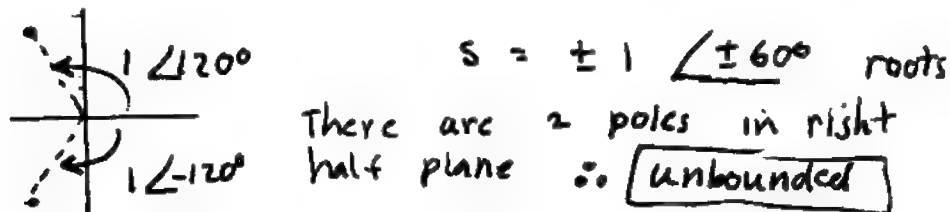 1 ∠120°
s = ± 1 ∠±60° roots
There are 2 poles in right
1∠-120°
half plane ∴ unbounded